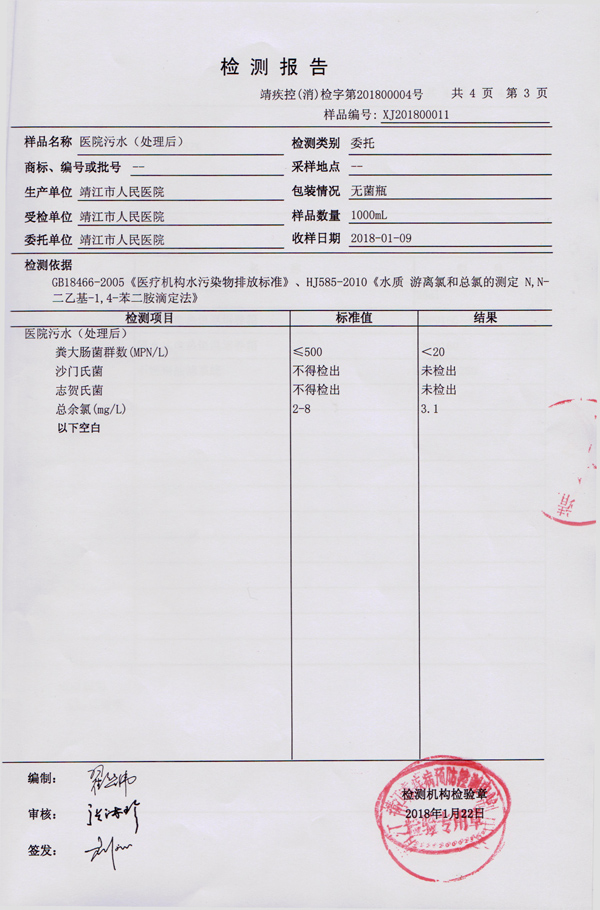 检测报告
靖疾控(消)检字第201800004号 共 4 页 第 3 页
样品编号: XJ201800011
样品名称 医院污水（处理后） 检测类别 委托
商标、编号或批号 -- 采样地点 --
生产单位 靖江市人民医院 包装情况 无菌瓶
受检单位 靖江市人民医院 样品数量 1000mL
委托单位 靖江市人民医院 收样日期 2018-01-09
检测依据
GB18466-2005《医疗机构水污染物排放标准》、HJ585-2010《水质 游离氯和总氯的测定 N,N-
二乙基-1,4-苯二胺滴定法》
检测项目 标准值 结果
医院污水（处理后）
粪大肠菌群数(MPN/L) ≤500 <20
沙门氏菌 不得检出 未检出
志贺氏菌 不得检出 未检出
总余氯(mg/L) 2-8 3.1
以下空白
靖
编制:
审核:
签发:
疾病预防控制
检测机构检验章
2018年1月22日
检验专用章